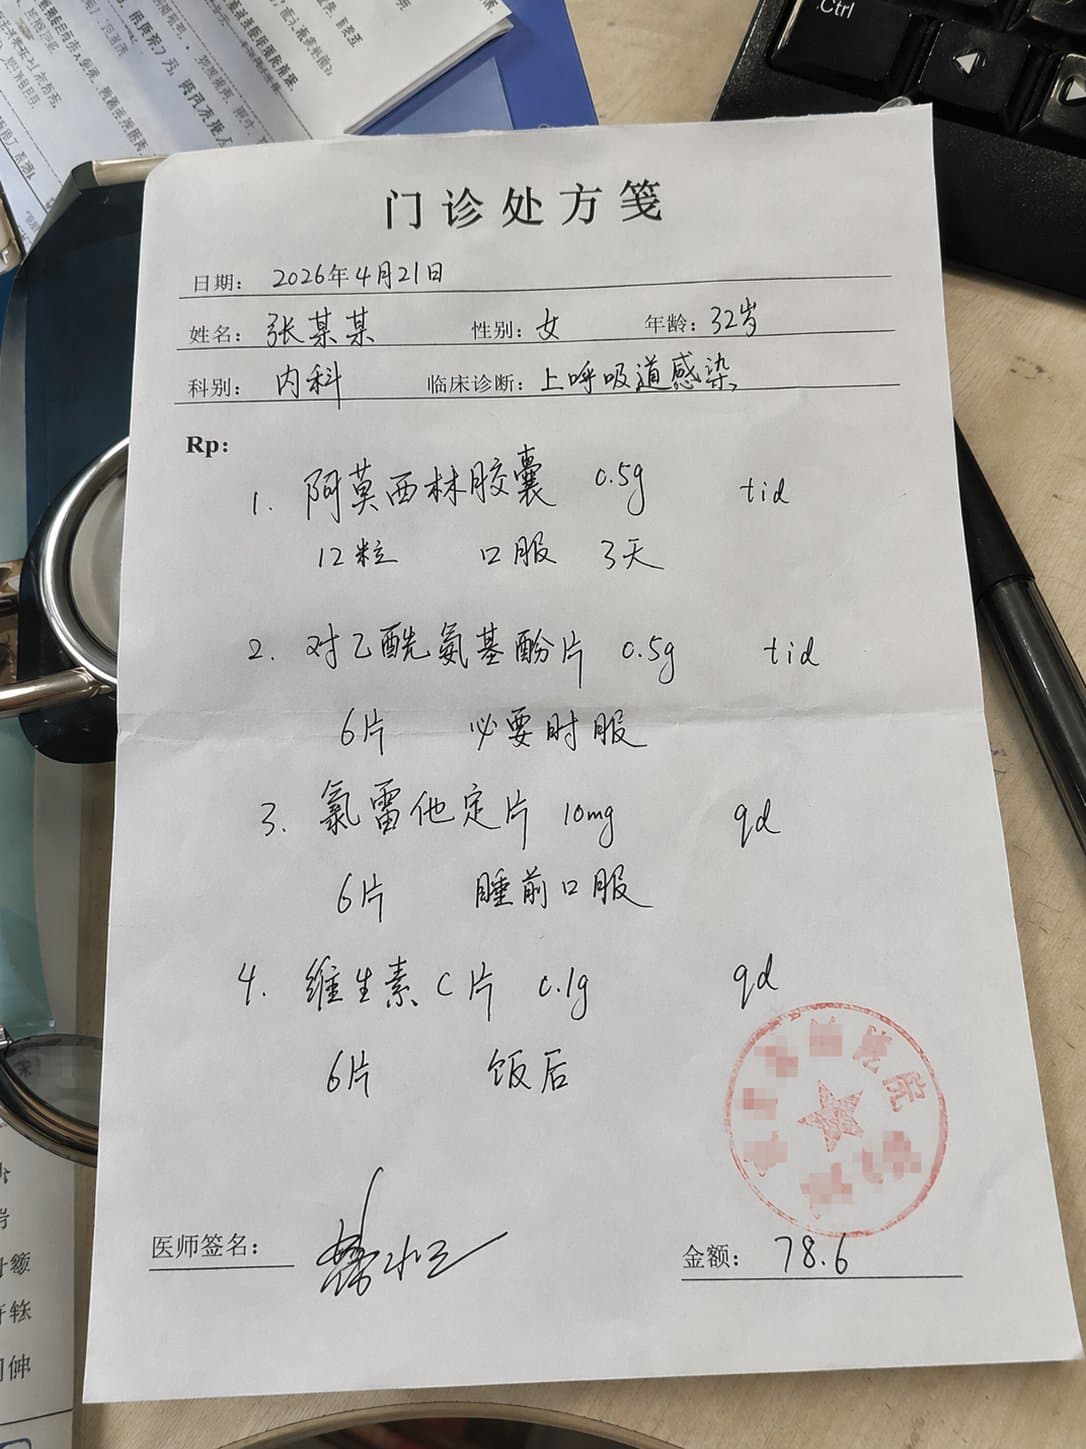 Ctrl
门诊处方笺
日期： 2026年4月21日
姓名： 张某某 性别： 女 年龄： 32岁
科别： 内科 临床诊断： 上呼吸道感染
Rp:
1. 阿莫西林胶囊 0.5g tid
12粒 口服 3天
2. 对乙酰氨基酚片 0.5g tid
6片 必要时服
3. 氯雷他定片 10mg qd
6片 睡前口服
4. 维生素C片 0.1g qd
6片 饭后
医师签名：
金额： 78.6